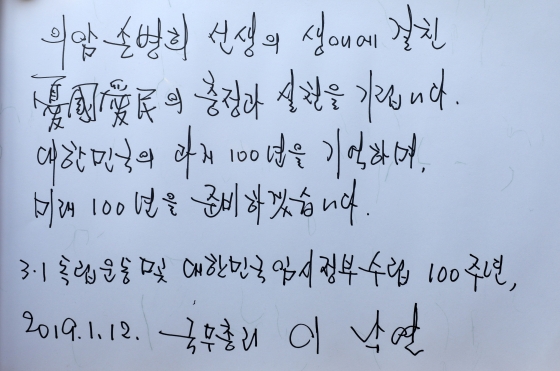 의암 손병희 선생의 생애에 걸친
憂國愛民의 충정과 실천을 기립니다.
대한민국의 과거 100년을 기억하며,
미래 100년을 준비하겠습니다.
3·1 독립운동 및 대한민국임시정부수립 100주년,
2019.1.12. 국무총리 이낙연